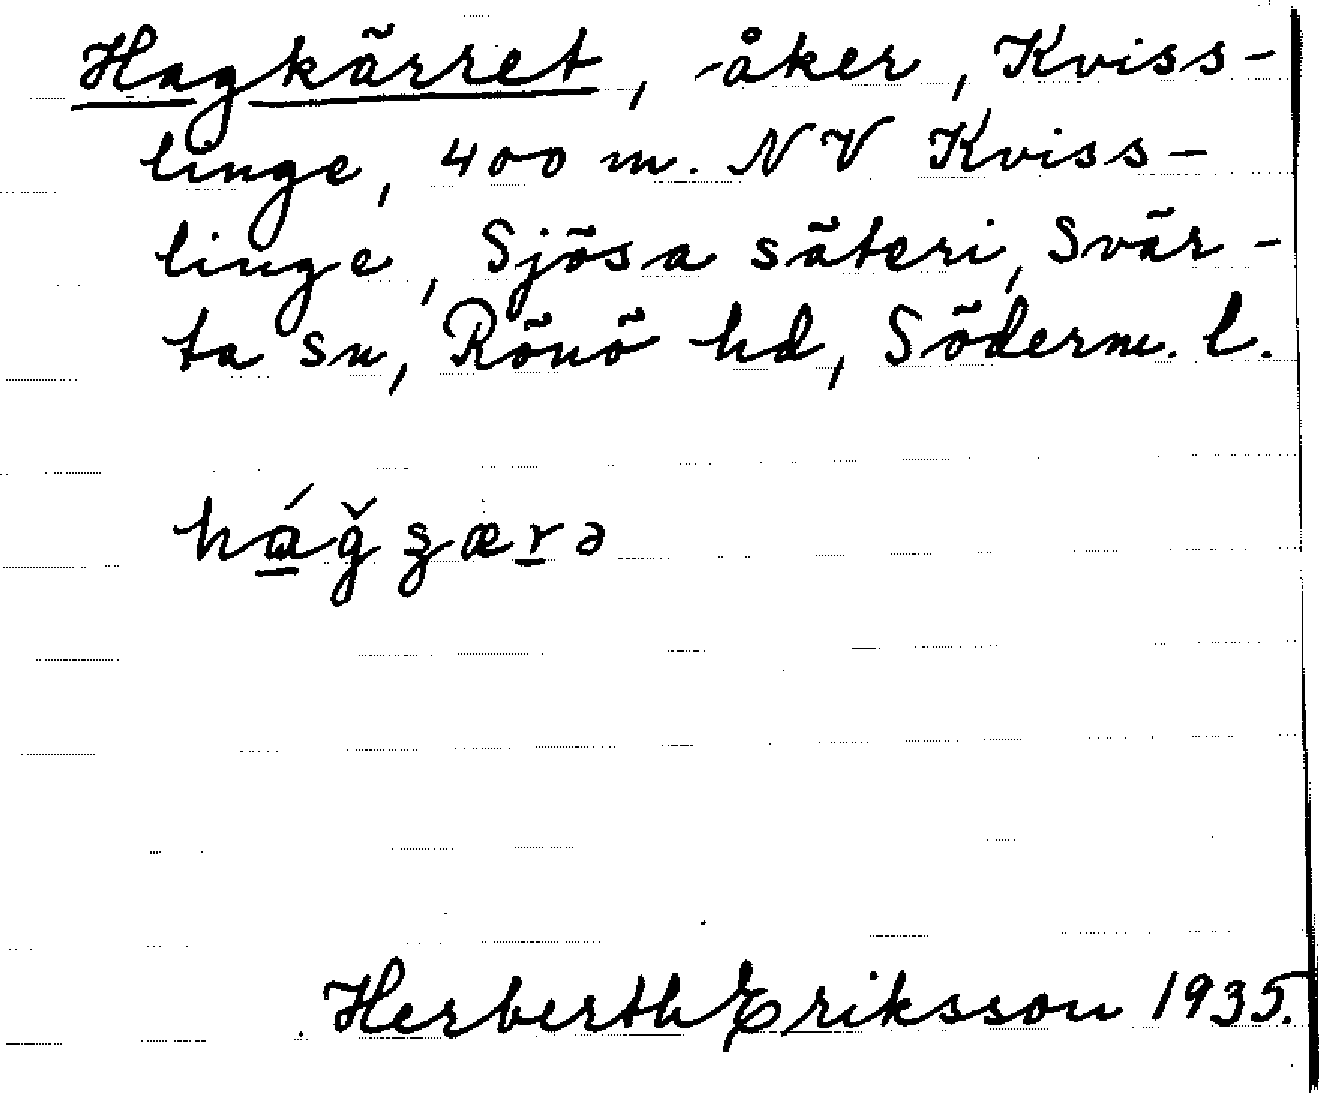 Hagkärret, åker, Kviss-
linge, 400 m. NV Kviss-
linge, Sjösa säteri, Svär-
ta sn, Rönö hd, Söderm. l.
Herberth Eriksson 1935.